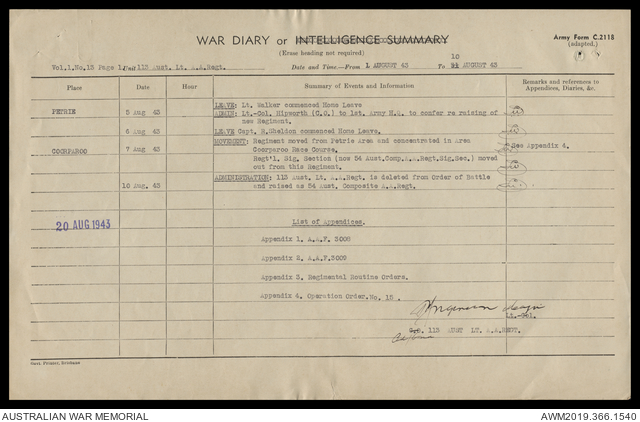 WAR DIARY or INTELLIGENCE SUMMARY
Army Form C.2118
(adapted.)
(Erase heading not required)
Vol.1.No.13 Page 1. 113 Aust. Lt. A.A.Regt.
Date and Time—From 1 AUGUST 43 To 10 AUGUST 43
Place Date Hour Summary of Events and Information Remarks and references to Appendices, Diaries, &c.
LEAVE: Lt. Walker commenced Home Leave
PETRIE 5 Aug 43 ADMIN: Lt.-Col. Hipworth (C.O.) to 1st. Army H.Q. to confer re raising of
new Regiment.
6 Aug 43 LEAVE Capt. R.Sheldon commenced Home Leave.
COORPAROO 7 Aug 43 MOVEMENT: Regiment moved from Petrie Area and concentrated in Area
Coorparoo Race Course. See Appendix 4.
Regt'l. Sig. Section (now 54 Aust.Comp.A.A.Regt.Sig.Sec.) moved
out from this Regiment.
ADMINISTRATION: 113 Aust. Lt. A.A.Regt. is deleted from Order of Battle
10 Aug. 43 and raised as 54 Aust. Composite A.A.Regt.
20 AUG 1943
List of Appendices.
Appendix 1. A.A.F. 3008
Appendix 2. A.A.F.3009
Appendix 3. Regimental Routine Orders.
Appendix 4. Operation Order.No. 15 .
Lt.-Col.
113 AUST LT. A.A.REGT.
Govt. Printer, Brisbane
AUSTRALIAN WAR MEMORIAL
AWM2019.366.1540